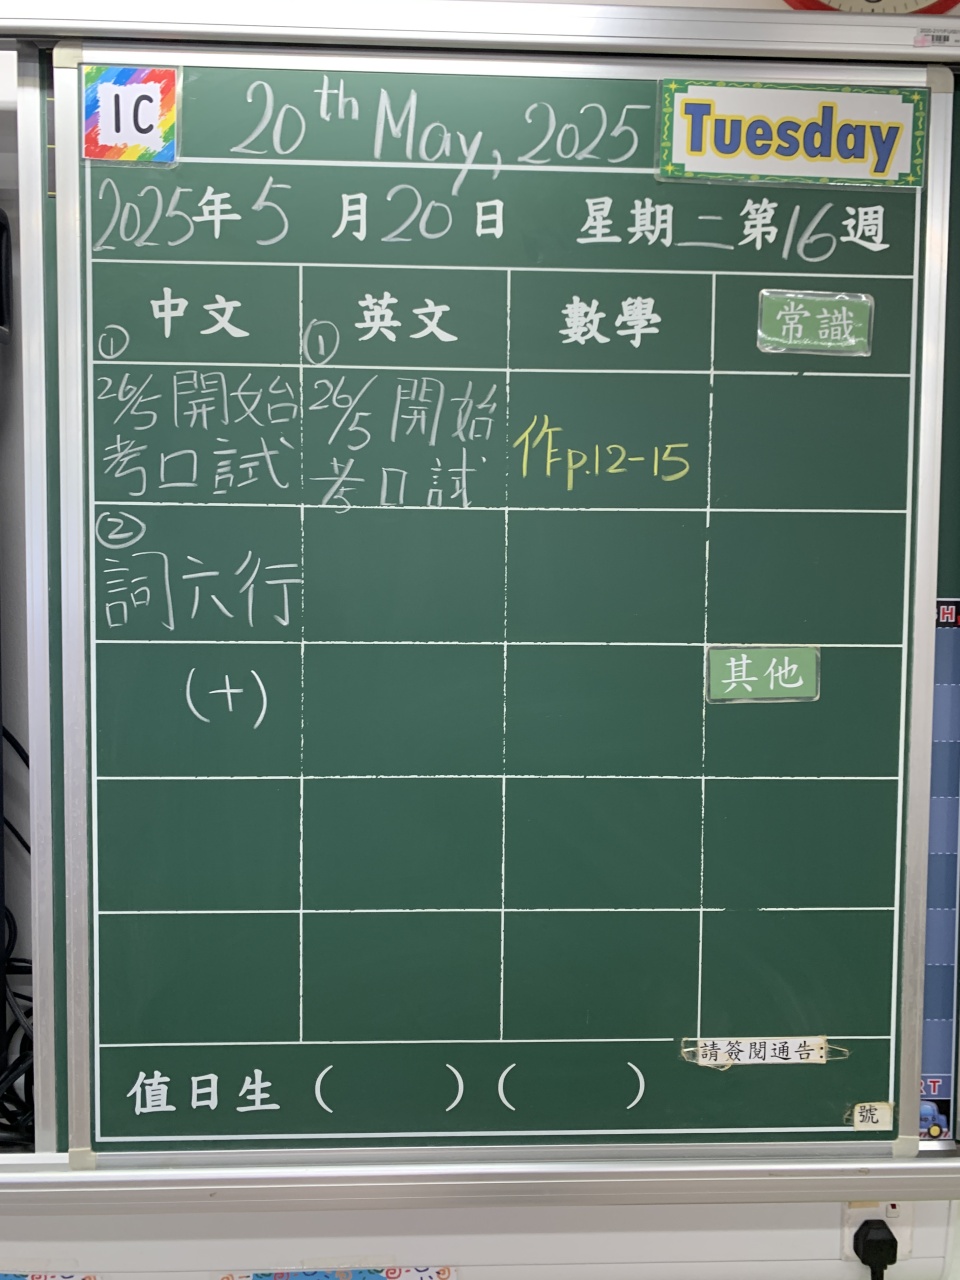 1C
20th May, 2025
Tuesday
2025年5月20日 星期二第16週
中文 英文 數學 常識
① 26/5開始考口試
① 26/5開始考口試
作p.12-15
② 詞六行
(十)
其他
請簽閱通告:
值日生( )( )
號